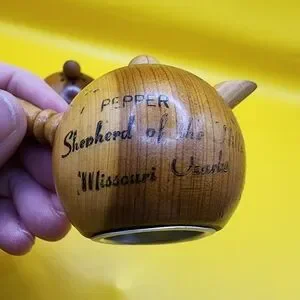 PEPPER
Shepherd of the Hills
Missouri Ozarks